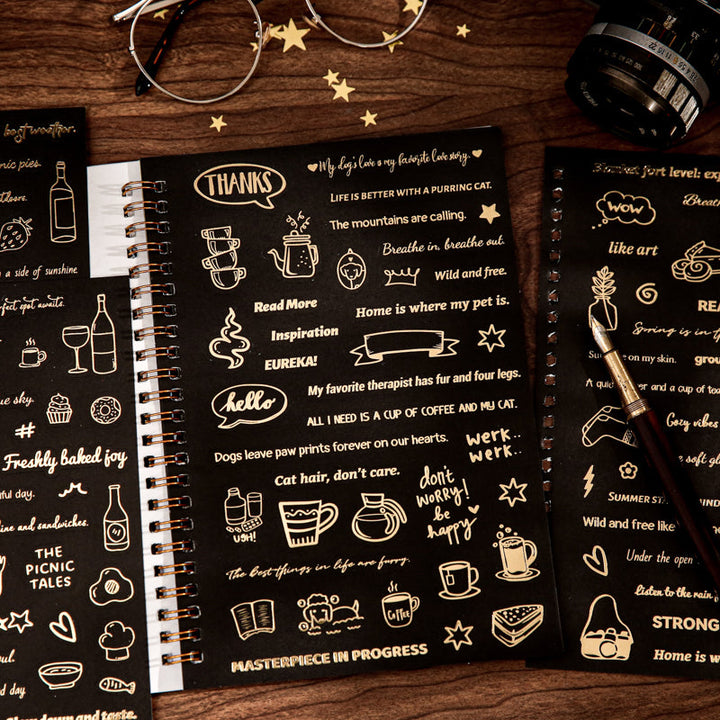 best weather.
nic pies.
a side of sunshine
rfect spot awaits.
ue sky.
#
Freshly baked joy
ful day.
ine and sandwiches.
THE
PICNIC
TALES
oul.
d day.
Slow down and taste.
THANKS
My dog's love is my favorite love story.
LIFE IS BETTER WITH A PURRING CAT.
The mountains are calling.
Breathe in, breathe out.
Wild and free.
Read More
Home is where my pet is.
Inspiration
EUREKA!
My favorite therapist has fur and four legs.
hello
ALL I NEED IS A CUP OF COFFEE AND MY CAT.
Dogs leave paw prints forever on our hearts.
werk..
werk..
Cat hair, don't care.
don't
WORRY!
be
happy
UGH!
The Best things in life are furry.
COFFEE
MASTERPIECE IN PROGRESS
Blanket fort level: exp
WOW
Breath
like art
REA
Spring is in t
Su on my skin.
grou
A quie er and a cup of tea
Cozy vibes
e soft gl
SUMMER ST UND
Wild and free like
Under the open
Listen to the rain
STRONG
Home is w